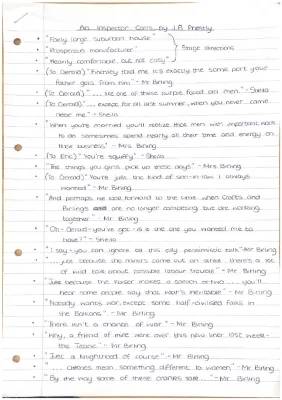 An Inspector Calls by J.B Priestly
• "Fairly large suburban house"
• "Prosperous manufacturer" } Stage directions
• "Heavily comfortable, but not cosy"
• (To Gerald) "Finchley told me it's exactly the same port your
father gets from him" - Mr Birling
• (To Gerald) "... like one of these purple faced old men" - Sheila
• (To Gerald) "... except for all last summer, when you never came
near me" - Sheila
• "When you're married you'll realise that men with important work
to do sometimes spend nearly all their time and energy on
their business" - Mrs Birling
• (To Eric) "You're squiffy" - Sheila
• "The things you girls pick up these days" - Mrs Birling
• (To Gerald) "You're just the kind of son-in-law I always
wanted" - Mr Birling
• "And perhaps we look forward to the time when Crofts and
Birlings are no longer competing but are working
together" - Mr Birling
• "Oh - Gerald - you've got it - is it the one you wanted me to
have?" - Sheila
• "I say - you can ignore all this silly pessimistic talk" Mr Birling
• "... just because the miners came out on strike, there's a lot
of wild talk about possible labour trouble" - Mr Birling
• "Just because the Kaiser makes a speech or two ... you'll
hear some people say that war's inevitable" - Mr Birling
• "Nobody wants war, except some half-civilised folks in
the Balkans" - Mr Birling
• "There isn't a chance of war" - Mr Birling
• "Why, a friend of mine went over this new liner last week -
the Titanic" - Mr Birling
• "Just a knighthood of course" - Mr Birling
• "... clothes mean something different to women" - Mr Birling
• "By the way some of these cranks talk ..." - Mr Birling